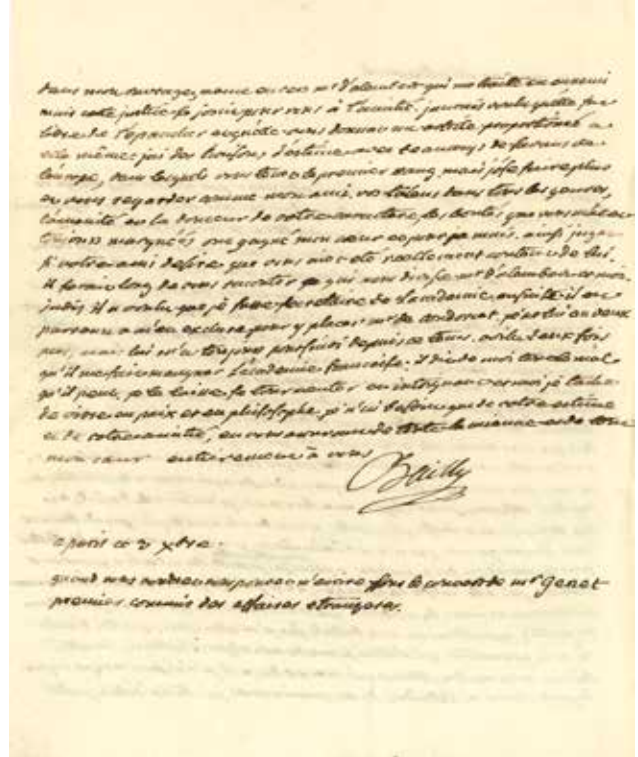 dans mon ouvrage, meme envers mr d'alembert qui me traite en ennemi
mais cette justice se joint pour vous à l'amitié. j'aurais voulu qu'elle fut
libre de s'epancher
même; j'ai des liaisons d'estime avec beaucoup de savans de
l'europe, dans lesquels vous tenez le premier rang, mais j'ose faire plus
en vous regardant comme mon ami. vos talens dans tous les genres,
l'humanité et la douceur de votre caractere, les bontés que vous m'avez
toujours marquées ont gagné mon coeur
si votre ami desire que vous ayez eté reellement content de lui.
il seroit long de vous raconter ce qui nous divise mr d'alembert et moi.
jadis il a voulu que je fusse secretaire de l'academie, ensuite il
m'en exclure pour y placer mr de condorcet,
lui m'a toujours poursuivi depuis ce tems. voila deux fois
qu'il me fait manquer l'academie françoise. il dit de moi tout le mal
qu'il peut, je le laisse se tourmenter et intriguer et moi je tache
de vivre en paix et en philosophe. je n'ai besoin que de votre estime
et de votre amitié, en vous assurant de toute la mienne et de
mon coeur entierement à vous
Bailly
a paris ce 2 xbre.
quand vous voudrez m'ecrire sous le couvert de mr Genet
premier commis des affaires etrangeres.